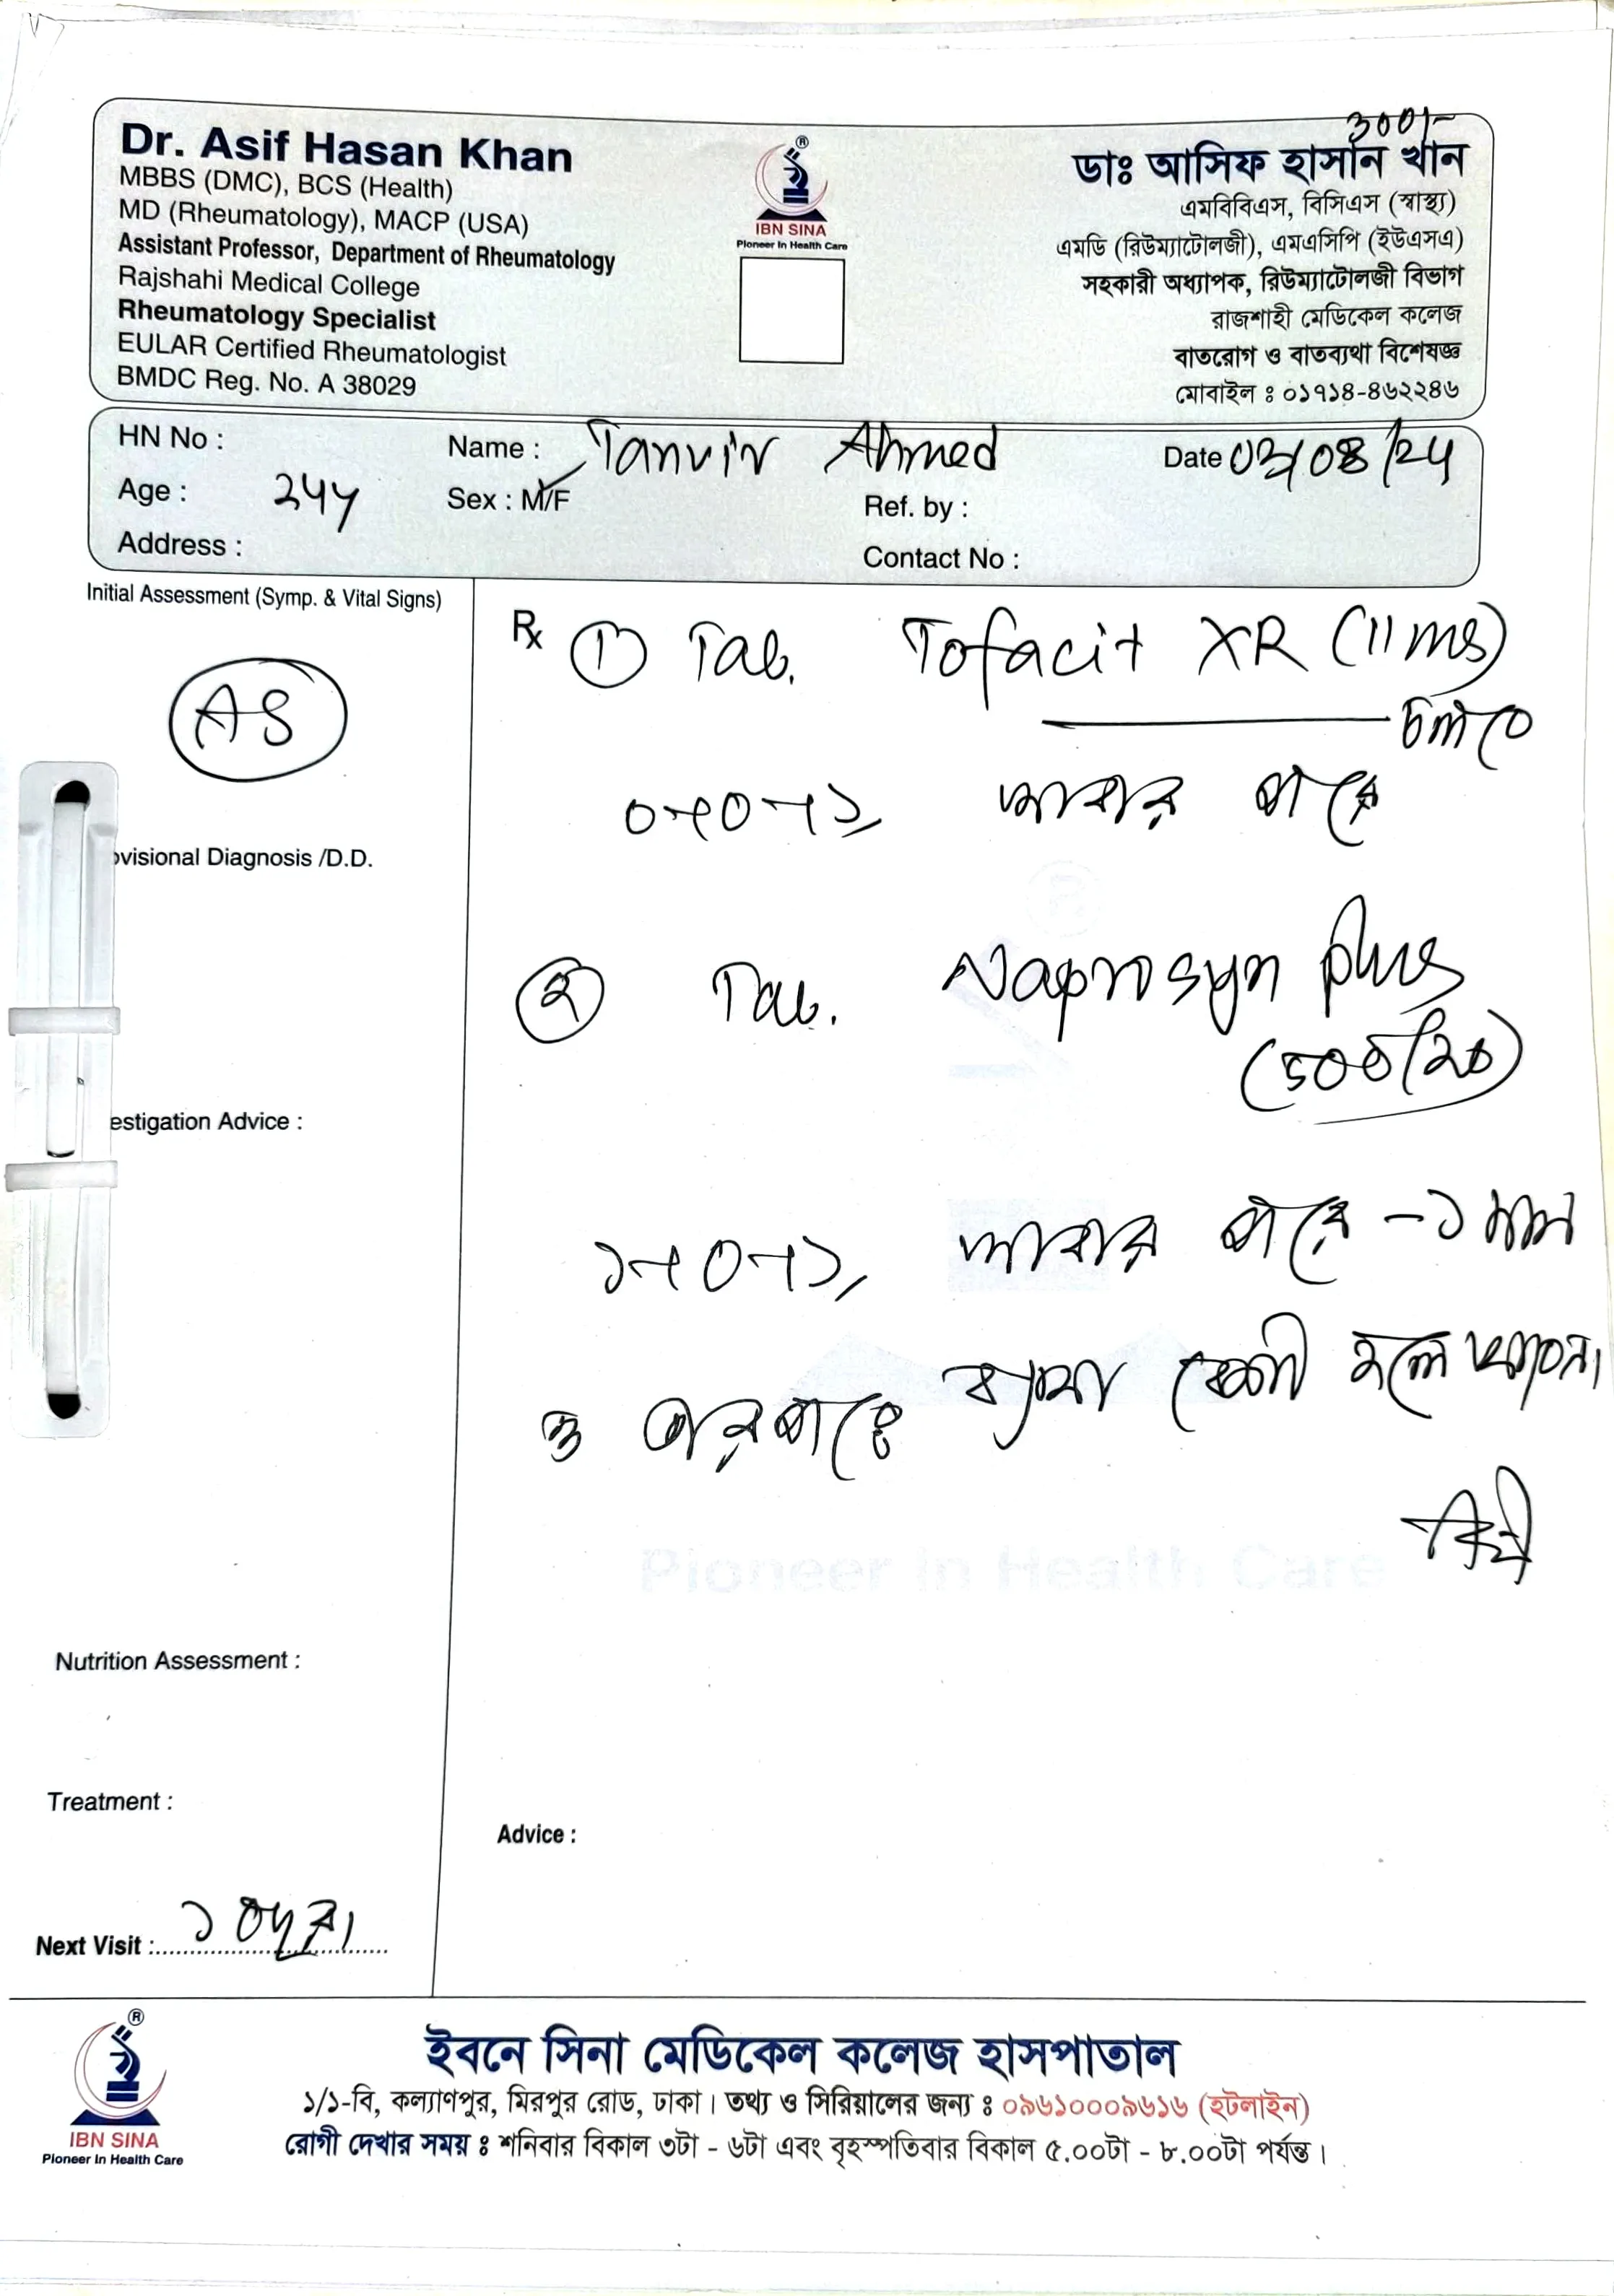 300/-
Dr. Asif Hasan Khan
MBBS (DMC), BCS (Health)
MD (Rheumatology), MACP (USA)
Assistant Professor, Department of Rheumatology
Rajshahi Medical College
Rheumatology Specialist
EULAR Certified Rheumatologist
BMDC Reg. No. A 38029
IBN SINA
Pioneer In Health Care
ডাঃ আসিফ হাসান খান
এমবিবিএস, বিসিএস (স্বাস্থ্য)
এমডি (রিউম্যাটোলজী), এমএসিপি (ইউএসএ)
সহকারী অধ্যাপক, রিউম্যাটোলজী বিভাগ
রাজশাহী মেডিকেল কলেজ
বাতরোগ ও বাতব্যথা বিশেষজ্ঞ
মোবাইল ঃ ০১৭১৪-৪৬২২৪৬
HN No :
Name : Tanvir Ahmed
Date 03/08/24
Age : 24y
Sex : M/F
Ref. by :
Address :
Contact No :
Initial Assessment (Symp. & Vital Signs)
AS
ovisional Diagnosis /D.D.
estigation Advice :
Nutrition Assessment :
Treatment :
Next Visit : ১
Rx ① Tab. Tofacit XR (11 mg)
চলবে
০+০+১, খাবার পরে
② Tab. Naprosyn plus
(500/20)
১+০+১, খাবার পরে - ১ মাস
ও তারপরে ব্যথা বেশী হলে খাবেন।
Pioneer In Health Care
Advice :
IBN SINA
Pioneer In Health Care
ইবনে সিনা মেডিকেল কলেজ হাসপাতাল
১/১-বি, কল্যাণপুর, মিরপুর রোড, ঢাকা। তথ্য ও সিরিয়ালের জন্য ঃ ০৯৬১০০০৯৬১৬ (হটলাইন)
রোগী দেখার সময় ঃ শনিবার বিকাল ৩টা - ৬টা এবং বৃহস্পতিবার বিকাল ৫.০০টা - ৮.০০টা পর্যন্ত।